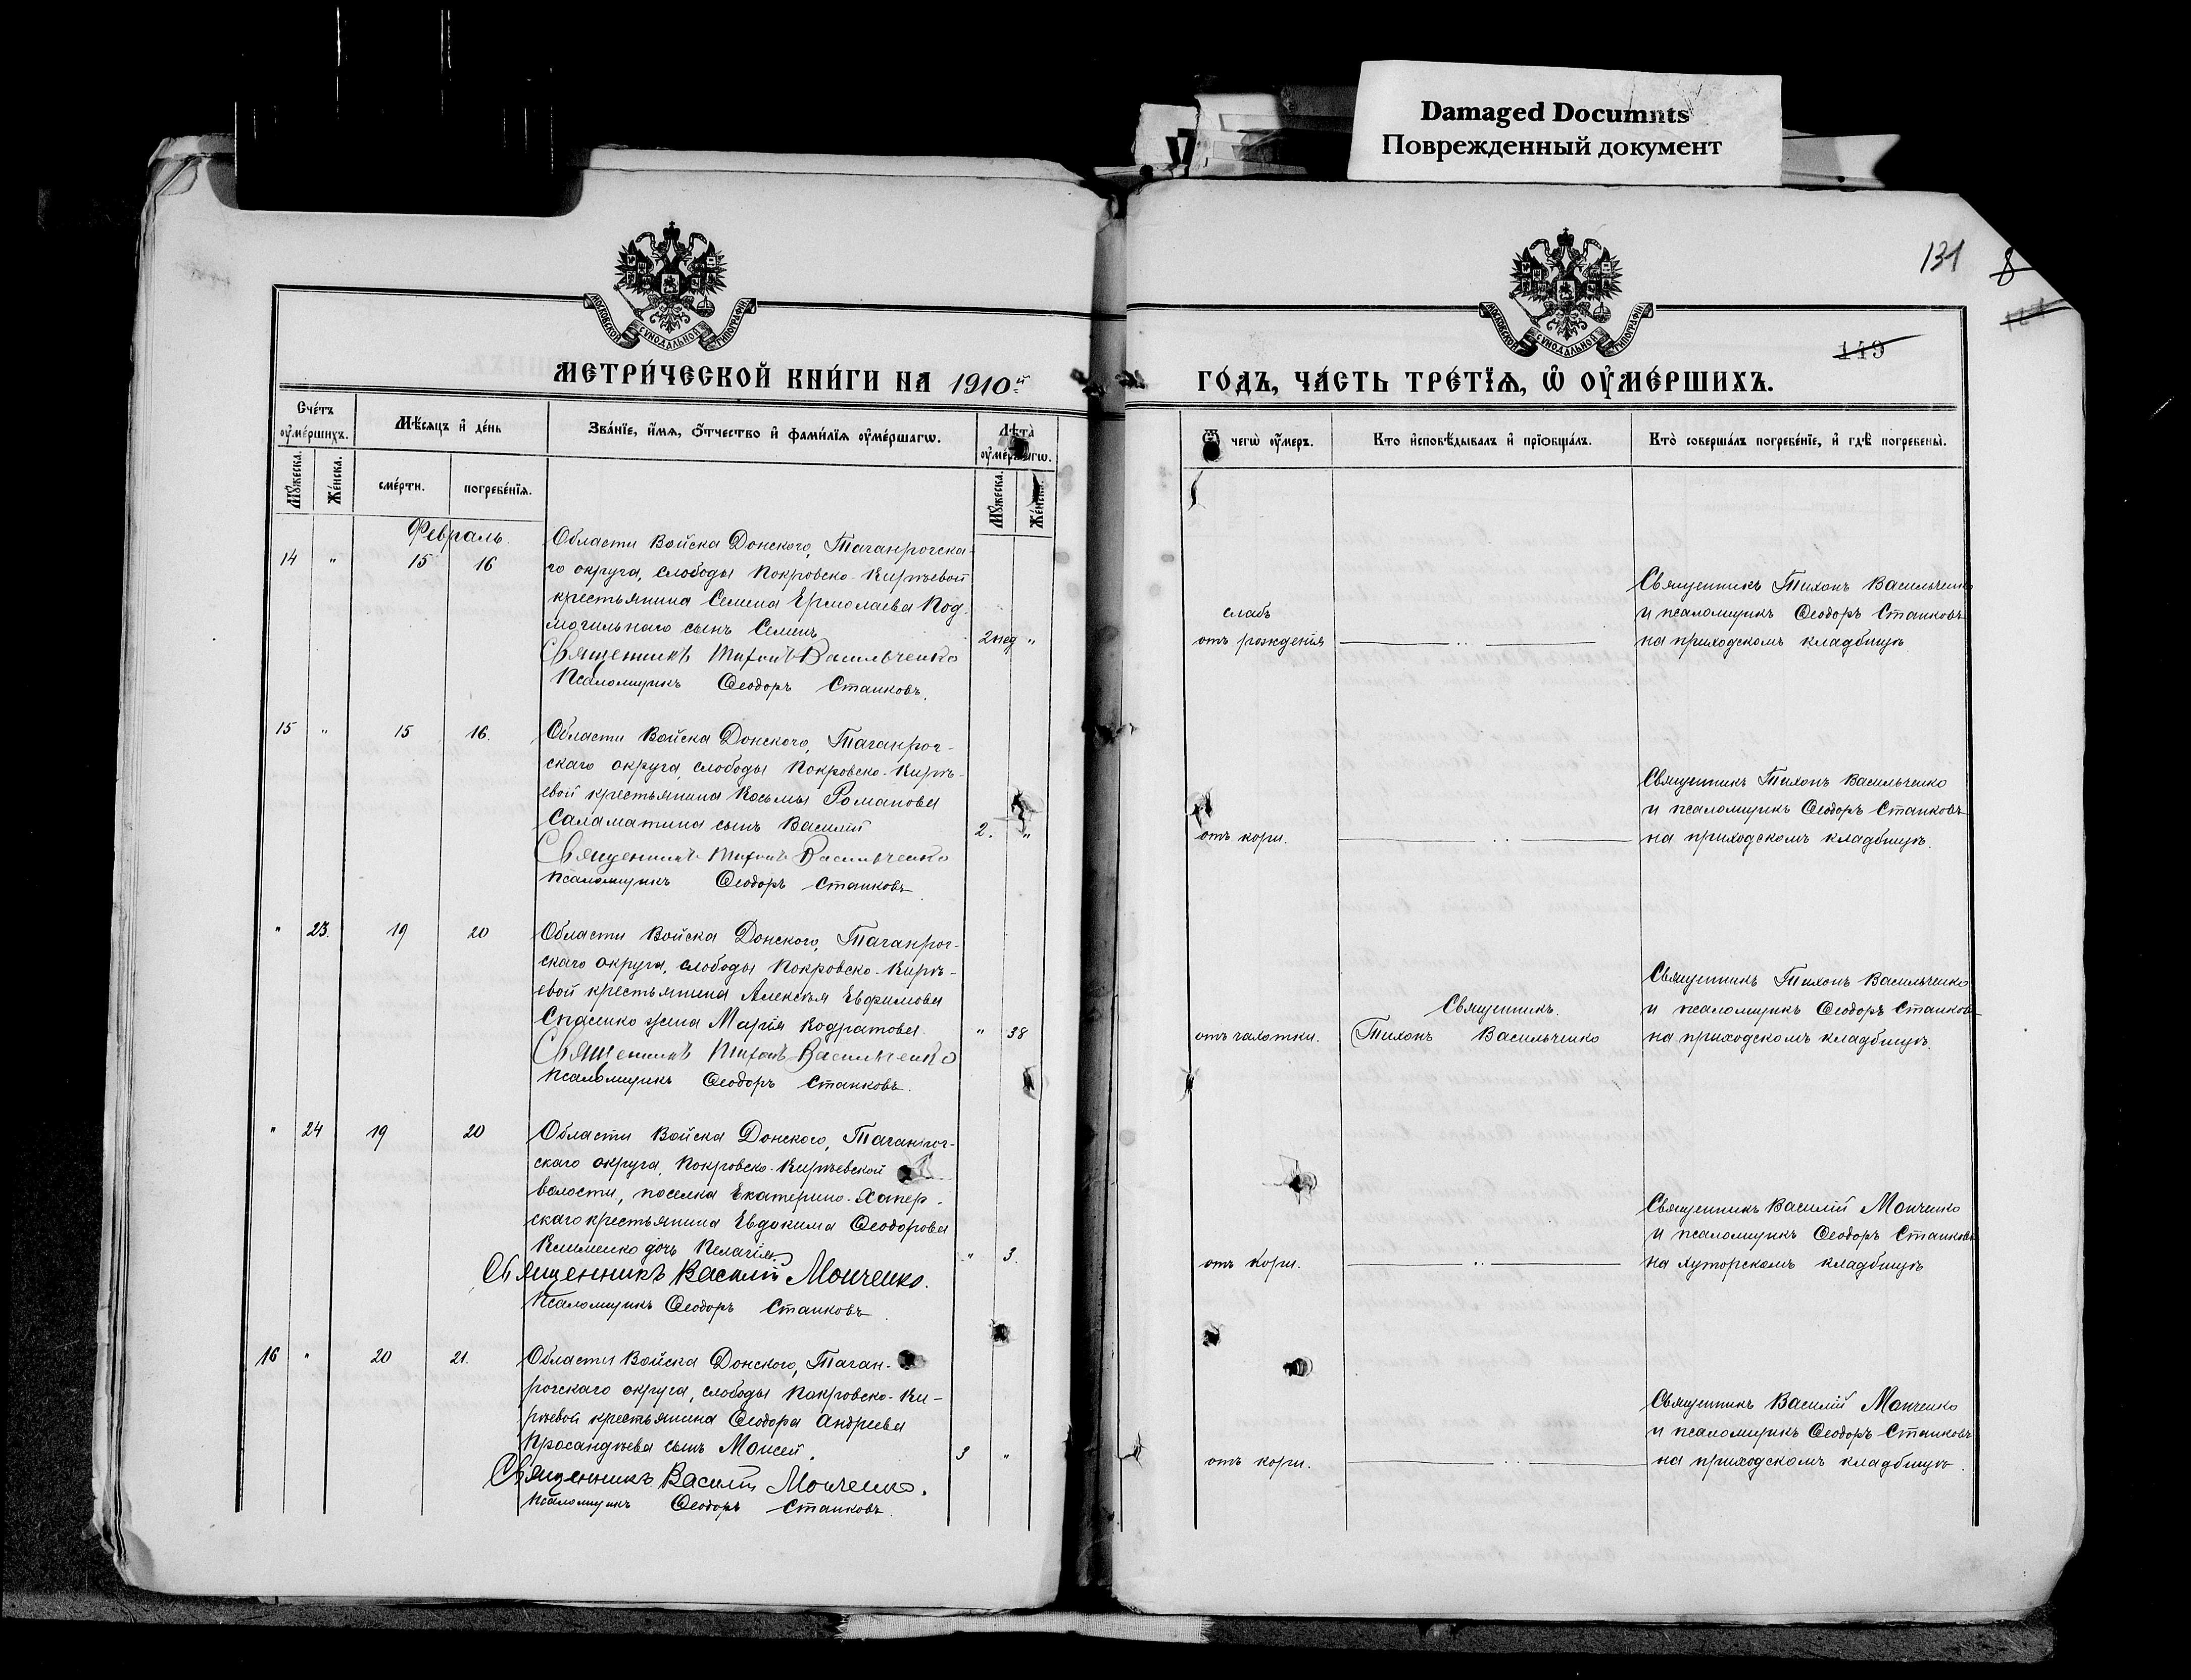 Damaged Documnts
Поврежденный документ
131
8
149
МОСКОВСКОЙ СУНОДАЛЬНОЙ ТИПОГРАФІИ
МОСКОВСКОЙ СУНОДАЛЬНОЙ ТИПОГРАФІИ
МЕТРИ́ЧЕСКОЙ КНИ́ГИ НА 1910й
ГО́ДЪ, ЧА́СТЬ ТРЕ́ТЇѦ, Ѡ҆ ОУ҆МЕ́РШИХЪ.
Сче́тъ оу҆ме́ршихъ.
Мѣ́сяцъ и҆ де́нь
Зва́нїе, и҆́мѧ, Ѻ҆́тчество и҆ фами́лїѧ оу҆ме́ршагѡ.
Лѣ́та оу҆ме́ршагѡ.
Ѿ чегѡ̀ оу҆́меръ.
Кто̀ и҆сповѣ́дывалъ и҆ прїѡбща́лъ.
Кто̀ соверша́лъ погребе́нїе, и҆ гдѣ̀ погребены̀.
Мꙋ́жеска.
Же́нска.
сме́рти.
погребе́нїѧ.
Мꙋ́жеска.
Же́нска.
Февраль.
14 " 15 16
Области Войска Донского, Таганрогска-
го округа, слободы Покровско-Кирѣевой
крестьянина Семена Ермолаева Под-
могильнаго сынъ Семенъ
2 нед "
Священникъ Тихонъ Васильченко
Псаломщикъ Ѳеодоръ Станковъ.
слабъ
отъ рожденія
Священникъ Тихонъ Васильченко
и псаломщикъ Ѳеодоръ Станковъ
на приходскомъ кладбищѣ.
15 " 15 16.
Области Войска Донского, Таганрог-
скаго округа, слободы Покровско-Кирѣ-
евой крестьянина Косьмы Романова
Саламатина сынъ Василій
2. "
Священникъ Тихонъ Васильченко
Псаломщикъ Ѳеодоръ Станковъ
отъ кори.
Священникъ Тихонъ Васильченко
и псаломщикъ Ѳеодоръ Станковъ
на приходскомъ кладбищѣ.
" 23. 19 20
Области Войска Донского, Таганрог-
скаго округа, слободы Покровско-Кирѣ-
евой крестьянина Алексѣя Евфимова
Спасенко жена Марія Кодратова.
" 38
Священникъ Тихонъ Васильченко
Псаломщикъ Ѳеодоръ Станковъ.
отъ чахотки.
Священникъ.
Тихонъ Васильченко
Священникъ Тихонъ Васильченко
и псаломщикъ Ѳеодоръ Станковъ
на приходскомъ кладбищѣ.
" 24 19 20
Области Войска Донского, Таганрог-
скаго округа, Покровско-Кирѣевской
волости, поселка Екатерино-Хапер-
скаго крестьянина Евдокима Ѳеодорова
Клименко дочь Пелагія
" 3.
Священникъ Василій Монченко.
Псаломщикъ Ѳеодоръ Станковъ.
отъ кори.
Священникъ Василій Монченко
и псаломщикъ Ѳеодоръ Станковъ
на хуторскомъ кладбищѣ
16 " 20 21.
Области Войска Донского, Таган-
рогскаго округа, слободы Покровско-Ки-
рѣевой крестьянина Ѳеодора Андреева
сынъ Моисей.
3 "
Священникъ Василій Монченко.
Псаломщикъ Ѳеодоръ Станковъ.
отъ кори.
Священникъ Василій Монченко
и псаломщикъ Ѳеодоръ Станковъ
на приходскомъ кладбищѣ.